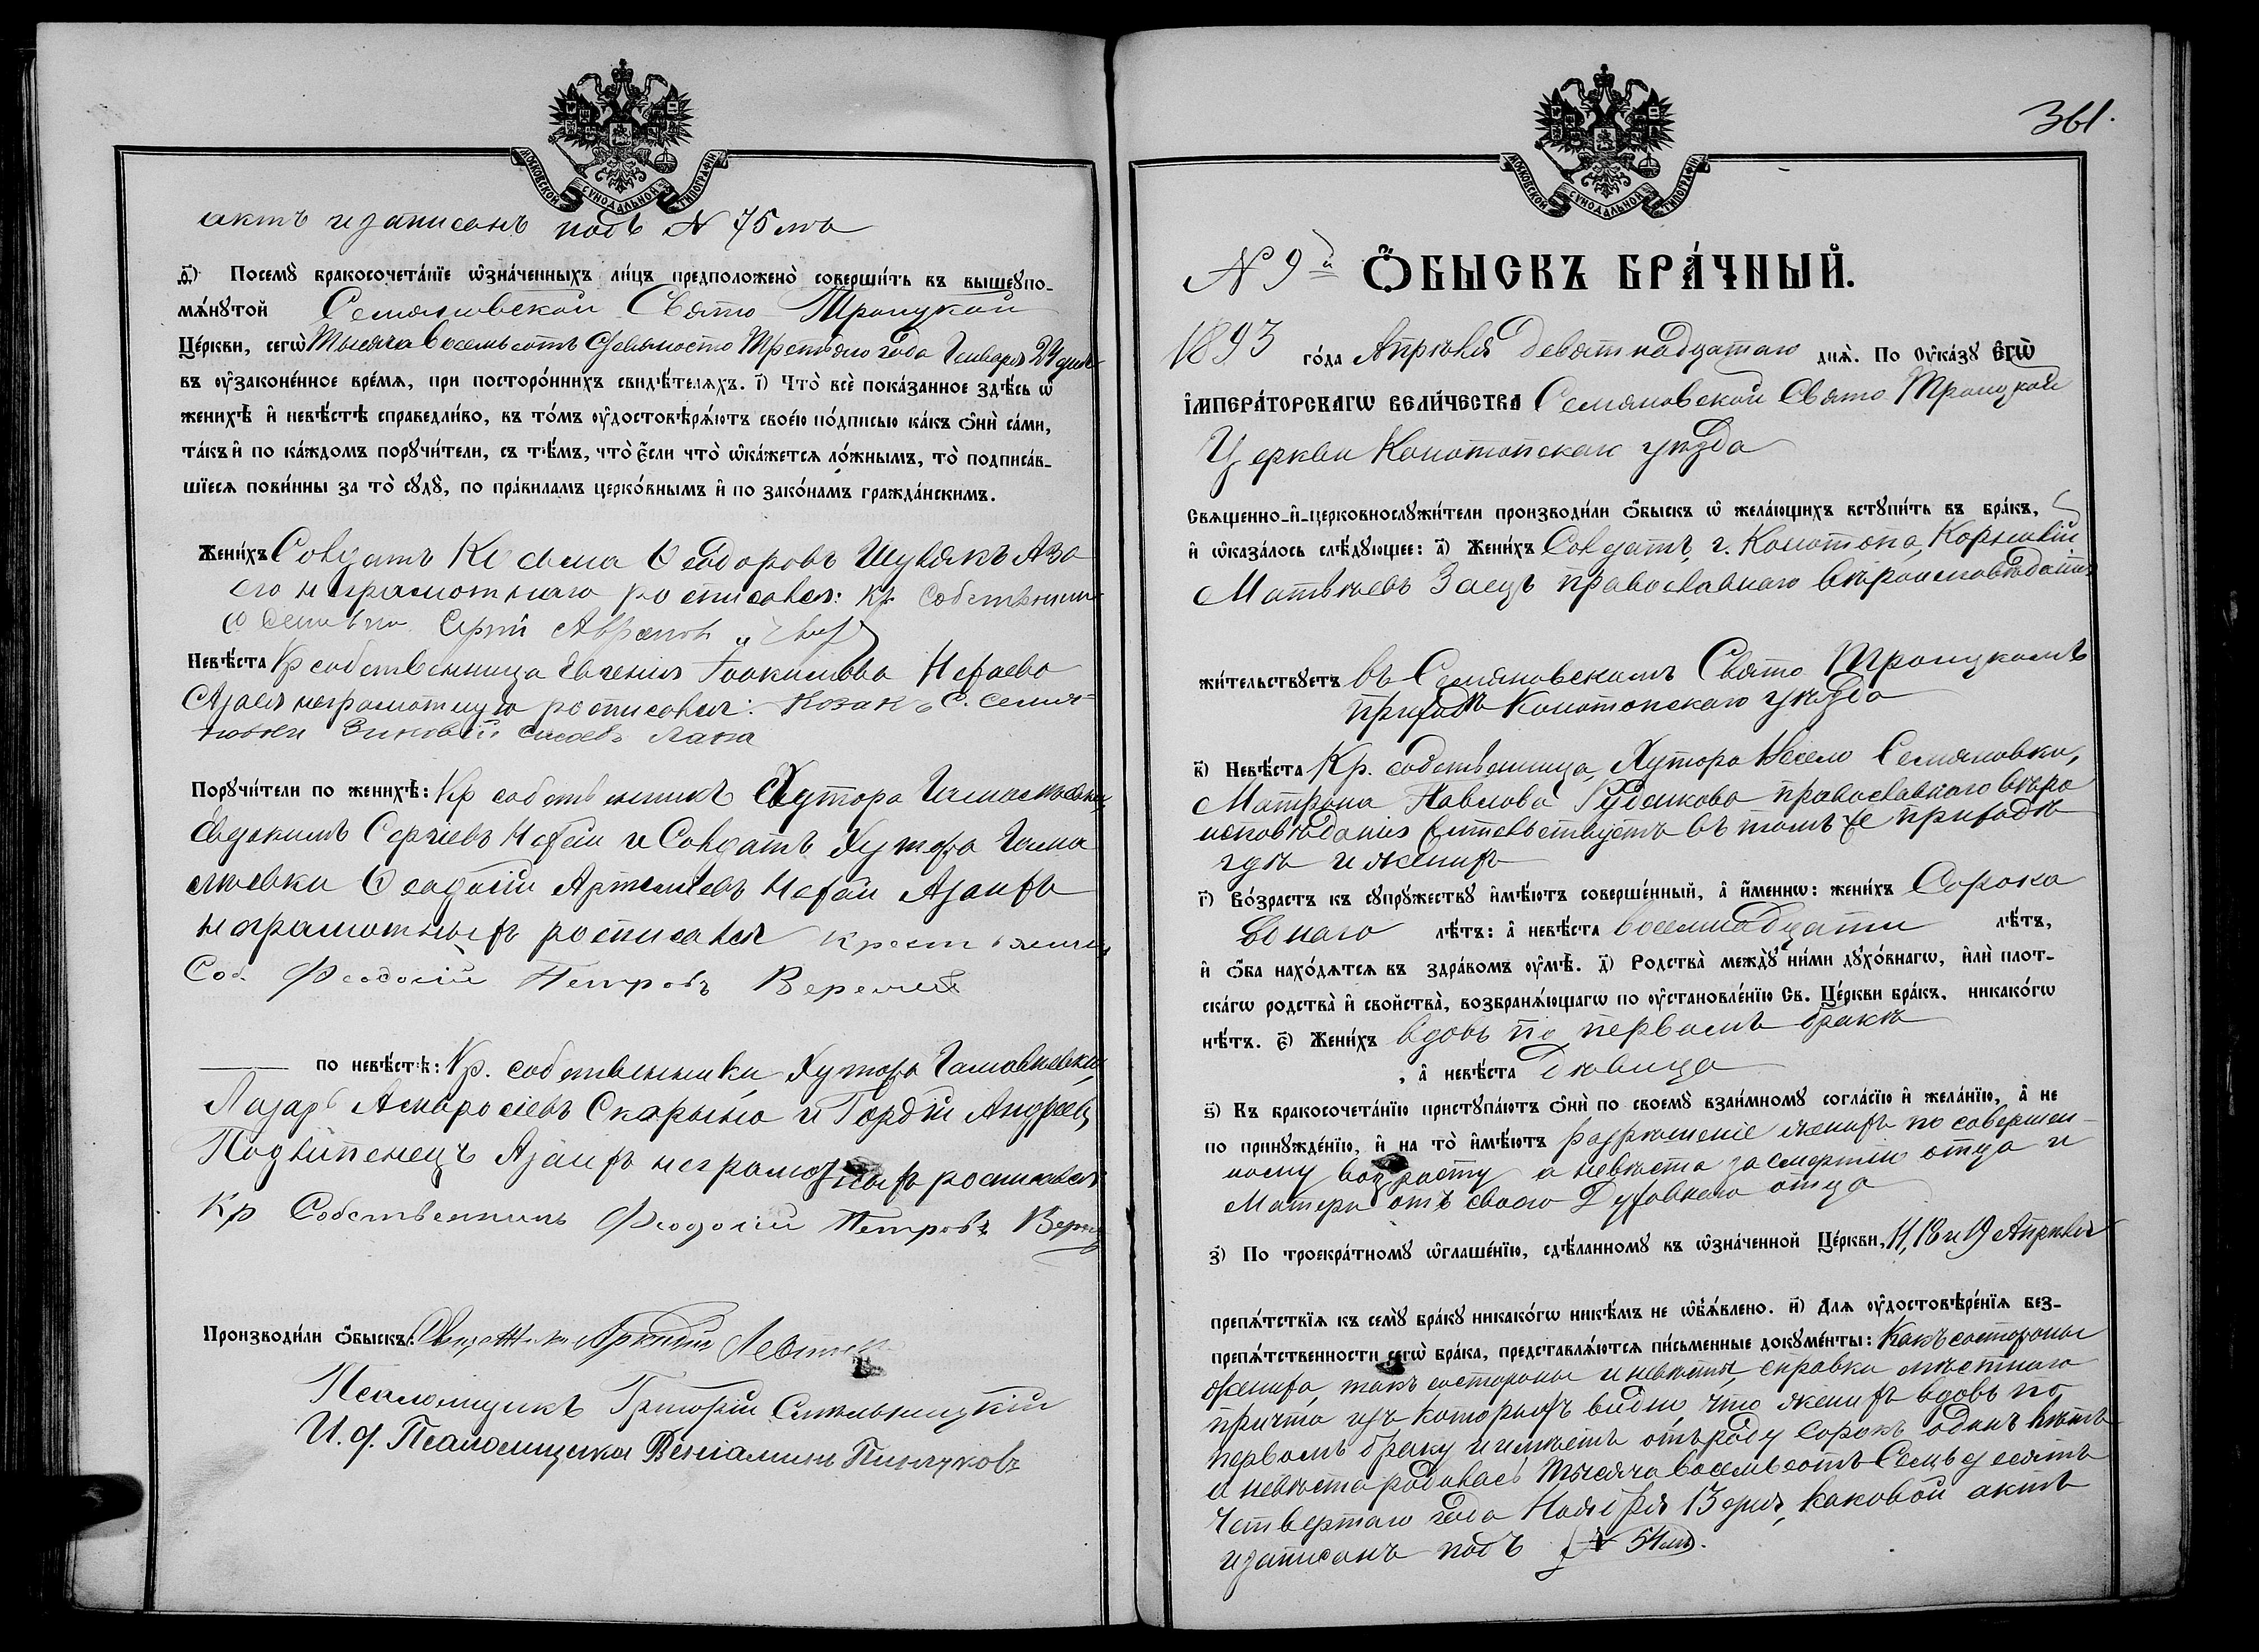 МОСКОВСКОЙ СУНОДАЛЬНОЙ ТИПОГРАФІИ
актъ и записанъ подъ № 75мъ
д҃) Посемꙋ̀ бракосочета́нїе ѡ҆зна́ченныхъ ли́цъ предположено̀ соверши́ть въ вышеꙋпо-
мѧ́нꙋтой Семяновской Свято Троицкой
Це́ркви, сегѡ̀ Тысяча восемьсотъ девяносто третьяго года Января 24 дня
въ ѹ҆законе́нное вре́мѧ, при посторо́ннихъ свидѣ́телѧхъ. і҃) Что̀ всѐ пока́занное здѣ́сь ѡ҆
женихѣ̀ и҆ невѣ́стѣ справедли́во, въ то́мъ ѹ҆достовѣрѧ́ютъ свое́ю по́дписью ка́къ ѻ҆нѝ са́ми,
та́къ и҆ по ка́ждомъ порꙋчи́тели, съ тѣ́мъ, что̀ є҆́сли что̀ ѡ҆ка́жетсѧ ло́жнымъ, то̀ подписа́в-
шїесѧ пови́нны за то̀ сꙋдꙋ̀, по пра́виламъ церко́внымъ и҆ по зако́намъ гражда́нскимъ.
Жени́хъ Солдатъ Косьма Ѳеодоровъ Шулякъ А за
его неграмотнаго росписался: Кр. собственникъ
Сергій
Невѣ́ста Кр собственница Евгенія Іоакимова Нехаева
А за ея неграмотную росписался: Козакъ С. Семя-
новки Зиновій Лапа
Порꙋчи́тели по женихѣ̀: Кр собственникъ Хутора Гамалѣевки
Евдокимъ Сергіевъ Нехай и Солдатъ Хутора Гама
лѣевки Ѳеодосій Артемьевъ Нехай А за ихъ
неграмотныхъ росписался крестьянинъ
Соб. Феодосій Петровъ Веремей
по невѣ́стѣ: Кр. собственники Хутора Гамалѣевки
Лазарь Амвросіевъ Скарына и Гордій Андреевъ
Подлипенецъ А за ихъ неграмотныхъ росписался
Кр Собственникъ Феодосій Петровъ Верем
Производи́ли ѻ҆́быскъ: Священникъ Аркадій Левитскій
Псаломщикъ Григорій Смѣльницкій
И. д. Псаломщика Веніаминъ Пинчуковъ
361.
МОСКОВСКОЙ СУНОДАЛЬНОЙ ТИПОГРАФІИ
№ 9й Ѻ҆́БЫСКЪ БРА́ЧНЫЙ.
1893 го́да Апрѣля девятнадцатаго днѧ̀. По ѹ҆ка́зꙋ Є҆гѡ̀
І҆мпера́торскагѡ Вели́чества Семяновской Свято Троицкой
Церкви Конотопскаго уѣзда
Свѧщенно-и҆-церковнослꙋжи́тели производи́ли ѻ҆́быскъ ѡ҆ жела́ющихъ встꙋпи́ть въ бра́къ,
и҆ ѡ҆каза́лось слѣ́дꙋющее: а҃) Жени́хъ Солдатъ г. Конотопа, Корнилій
Матвѣевъ Заецъ православнаго вѣроисповѣданія
жи́тельствꙋетъ въ Семяновскомъ Свято Троицкомъ
приходѣ Конотопскаго уѣзда
в҃) Невѣ́ста Кр. собственница, Хутора Весело Семяновки,
Матрона Павлова Гуденкова православнаго вѣро
исповѣданія жительствуетъ въ томъ же приходѣ
гдѣ и женихъ
г҃) Во́зрастъ къ сꙋпрꙋ́жествꙋ и҆мѣ́ютъ соверше́нный, а҆ и҆́меннѡ: жени́хъ Сорока
однаго лѣ́тъ: а҆ невѣ́ста восемнадцати лѣ́тъ,
и҆ ѻ҆́ба нахо́дѧтсѧ въ здра́вомъ ѹ҆мѣ̀. д҃) Родства̀ междꙋ̀ ни́ми дꙋхо́внагѡ, и҆лѝ плот-
ска́гѡ родства̀ и҆ сво́йства̀, возбранѧ́ющагѡ по ѹ҆становле́нїю Св. Це́ркви бра́къ, никако́гѡ
нѣ́тъ. є҃) Жени́хъ вдовъ по первомъ бракѣ
, а҆ невѣ́ста Дѣвица
ѕ҃) Къ бракосочета́нїю пристꙋпа́ютъ ѻ҆нѝ по своемꙋ̀ взаи́мномꙋ согла́сїю и҆ жела́нїю, а҆ не
по принꙋжде́нїю, и҆ на то̀ и҆мѣ́ютъ разрѣшеніе женихъ по совершен-
ному возрасту а невѣста за смертію отца и
Матери отъ своего Духовнаго отца
з҃) По троекра́тномꙋ ѡ҆глаше́нїю, сдѣ́ланномꙋ въ ѡ҆зна́ченной Це́ркви, 11, 18 и 19 Апрѣля
препѧ́тствїѧ къ семꙋ̀ бра́кꙋ никако́гѡ никѣ́мъ не ѡ҆бъѧ́влено. и҃) Длѧ ѹ҆достовѣре́нїѧ без-
препѧ́тственности сегѡ̀ бра́ка, представлѧ́ютсѧ пи́сьменные докꙋме́нты: Какъ со стороны
жениха, такъ со стороны и невѣсты, справка мѣстнаго
причта изъ которыхъ видно, что женихъ вдовъ по
первомъ браку и имѣетъ отъ роду сорокъ одинъ лѣтъ
а невѣста родилась тысяча восемьсотъ Семьдесятъ
четвертаго года Ноября 13 дня, каковой актъ
и записанъ подъ № 54мъ.